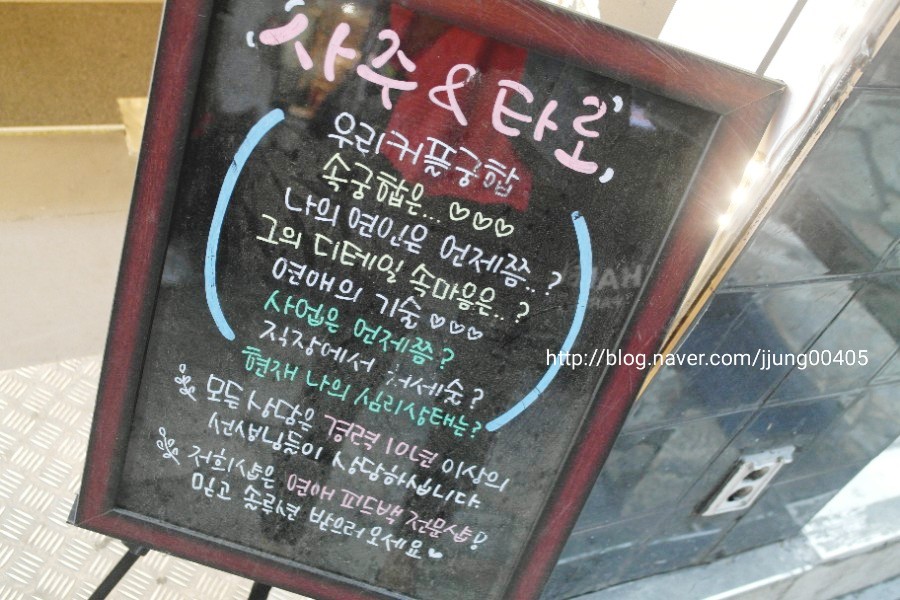 사주 & 타로
우리커플궁합
속궁합은... ♡♡♡
나의 연인은 언제쯤..?
그의 디테일 속마음은..?
연애의 기술 ♡♡♡
사업은 언제쯤?
직장에서 처세술?
현재 나의 심리상태는?
모든 상담은 경력 10년 이상의
선생님들이 상담하십니다.
저희샵은 연애 피드백 전문샵!
믿고 솔루션 받으러 오세요♥
http://blog.naver.com/jjung00405